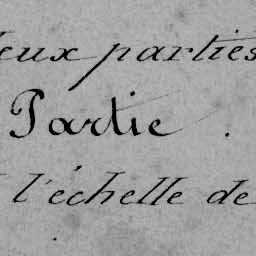 deux parties
Partie.
l'échelle de